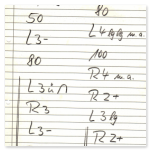 50
L3-
80
L3
R3
L3-
80
L4 m.a.
100
R4 m.a.
R2+
L3
R2+